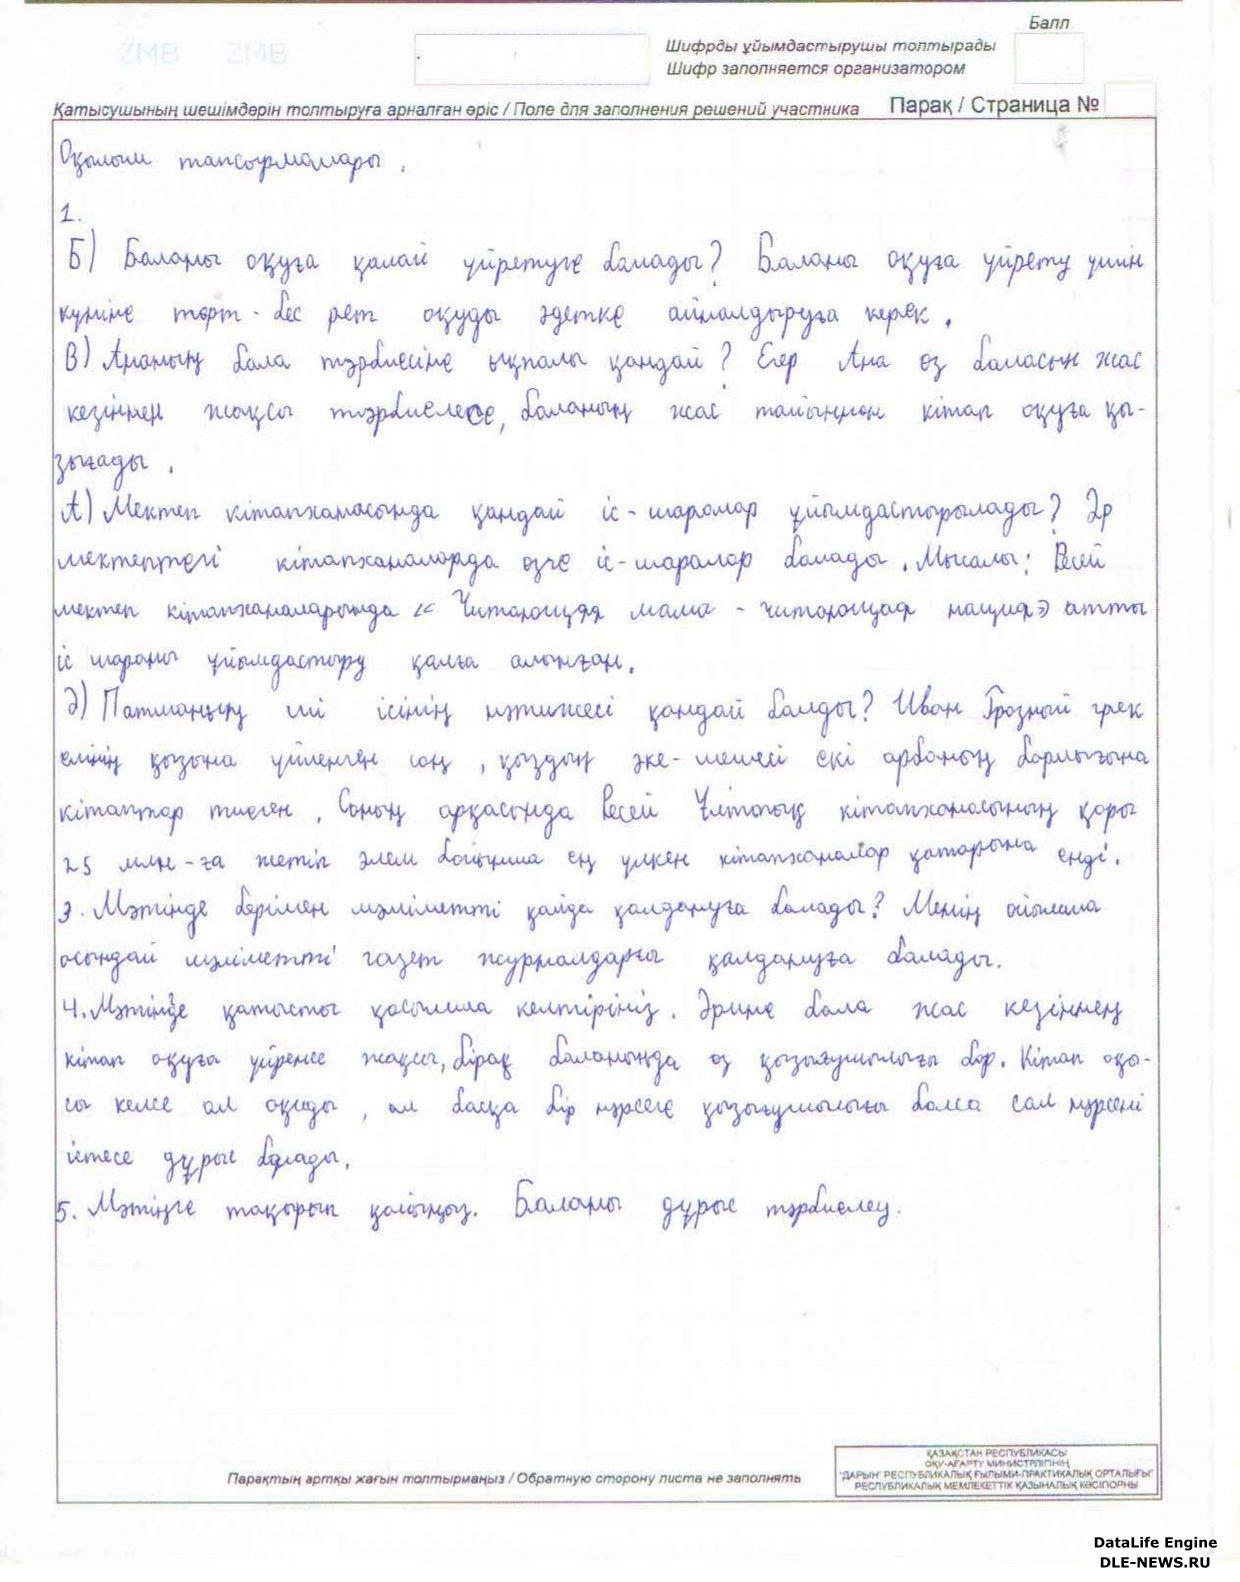 ZMB ZMB
Балл
Шифрды ұйымдастырушы толтырады
Шифр заполняется организатором
Қатысушының шешімдерін толтыруға арналған өріс / Поле для заполнения решений участника Парақ / Страница №
Оқылым тапсырмалары.
1.
Б) Баланы оқуға қалай үйретуге болады? Баланы оқуға үйрету үшін
күніне төрт - бес рет оқуды әдетке айналдыруға керек.
В) Ананың бала тәрбиесіне ықпалы қандай? Егер Ана өз баласын жас
кезіннен жақсы тәрбиелесе, баланың жас тайыннан кітап оқуға қы-
зығады.
А) Мектеп кітапханасында қандай іс-шаралар ұйымдастырылады? Әр
мектептегі кітапханаларда өзге іс-шаралар болады. Мысалы: Ресей
мектеп кітапханаларында « Читающая мама - читающая нация» атты
іс шараны ұйымдастыру қалға алынған.
Ә) Патшаның ісінің нәтижесі қандай болды? Иван Грозный грек
елінің қызына үйленген соң, қыздың әке-шешесі екі арбаның барлығына
кітаптар тиеген. Соның арқасында Ресей Ұлттық кітапханасының қоры
25 млн-ға жетіп әлем бойынша ең үлкен кітапханалар қатарына енді.
3. Мәтінде берілген мәліметті қайда қолдануға болады? Менің ойымша
осындай мәліметті газет журналдарға қолдануға болады.
4. Мәтінге қатысты қосымша келтіріңіз. Әрине бала жас кезіннен
кітап оқуға үйренсе жақсы, бірақ баланыңда өз қызығушылығы бар. Кітап оқы-
сы келсе ол оқиды, ал басқа бір нәрсеге қызығушылығы болса сол нәрсені
істесе дұрыс болады.
5. Мәтінге тақырып қойыңыз. Баланы дұрыс тәрбиелеу.
Парақтың артқы жағын толтырмаңыз / Обратную сторону листа не заполнять
ҚАЗАҚСТАН РЕСПУБЛИКАСЫ
ОҚУ-АҒАРТУ МИНИСТРЛІГІНІҢ
"ДАРЫН" РЕСПУБЛИКАЛЫҚ ҒЫЛЫМИ-ПРАКТИКАЛЫҚ ОРТАЛЫҒЫ"
РЕСПУБЛИКАЛЫҚ МЕМЛЕКЕТТІК ҚАЗЫНАЛЫҚ КӘСІПОРНЫ
DataLife Engine
DLE-NEWS.RU